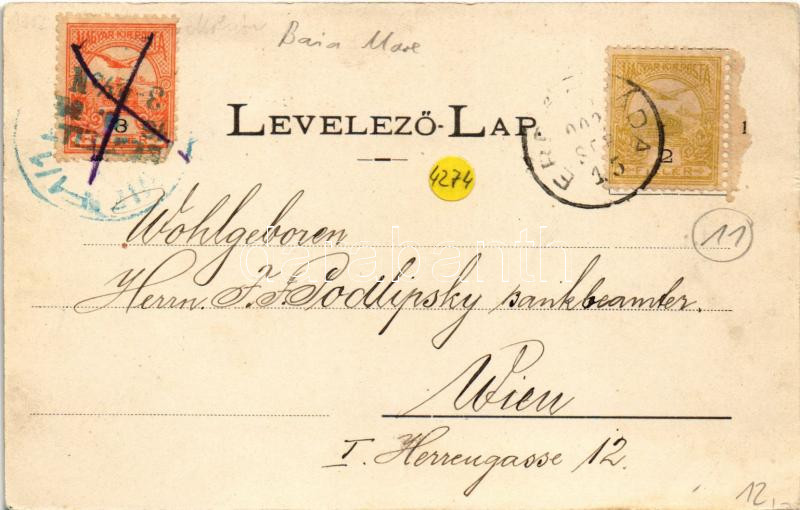 Baia Mare
MAGYAR KIR. POSTA
3
MAGYAR KIR. POSTA
2
FILLER
LEVELEZŐ-LAP
1
4274
11
Wohlgeboren
Herrn. F. F. Podlipsky Bankbeamter.
Wien
I. Herrengasse 12.
12,-
darabanth